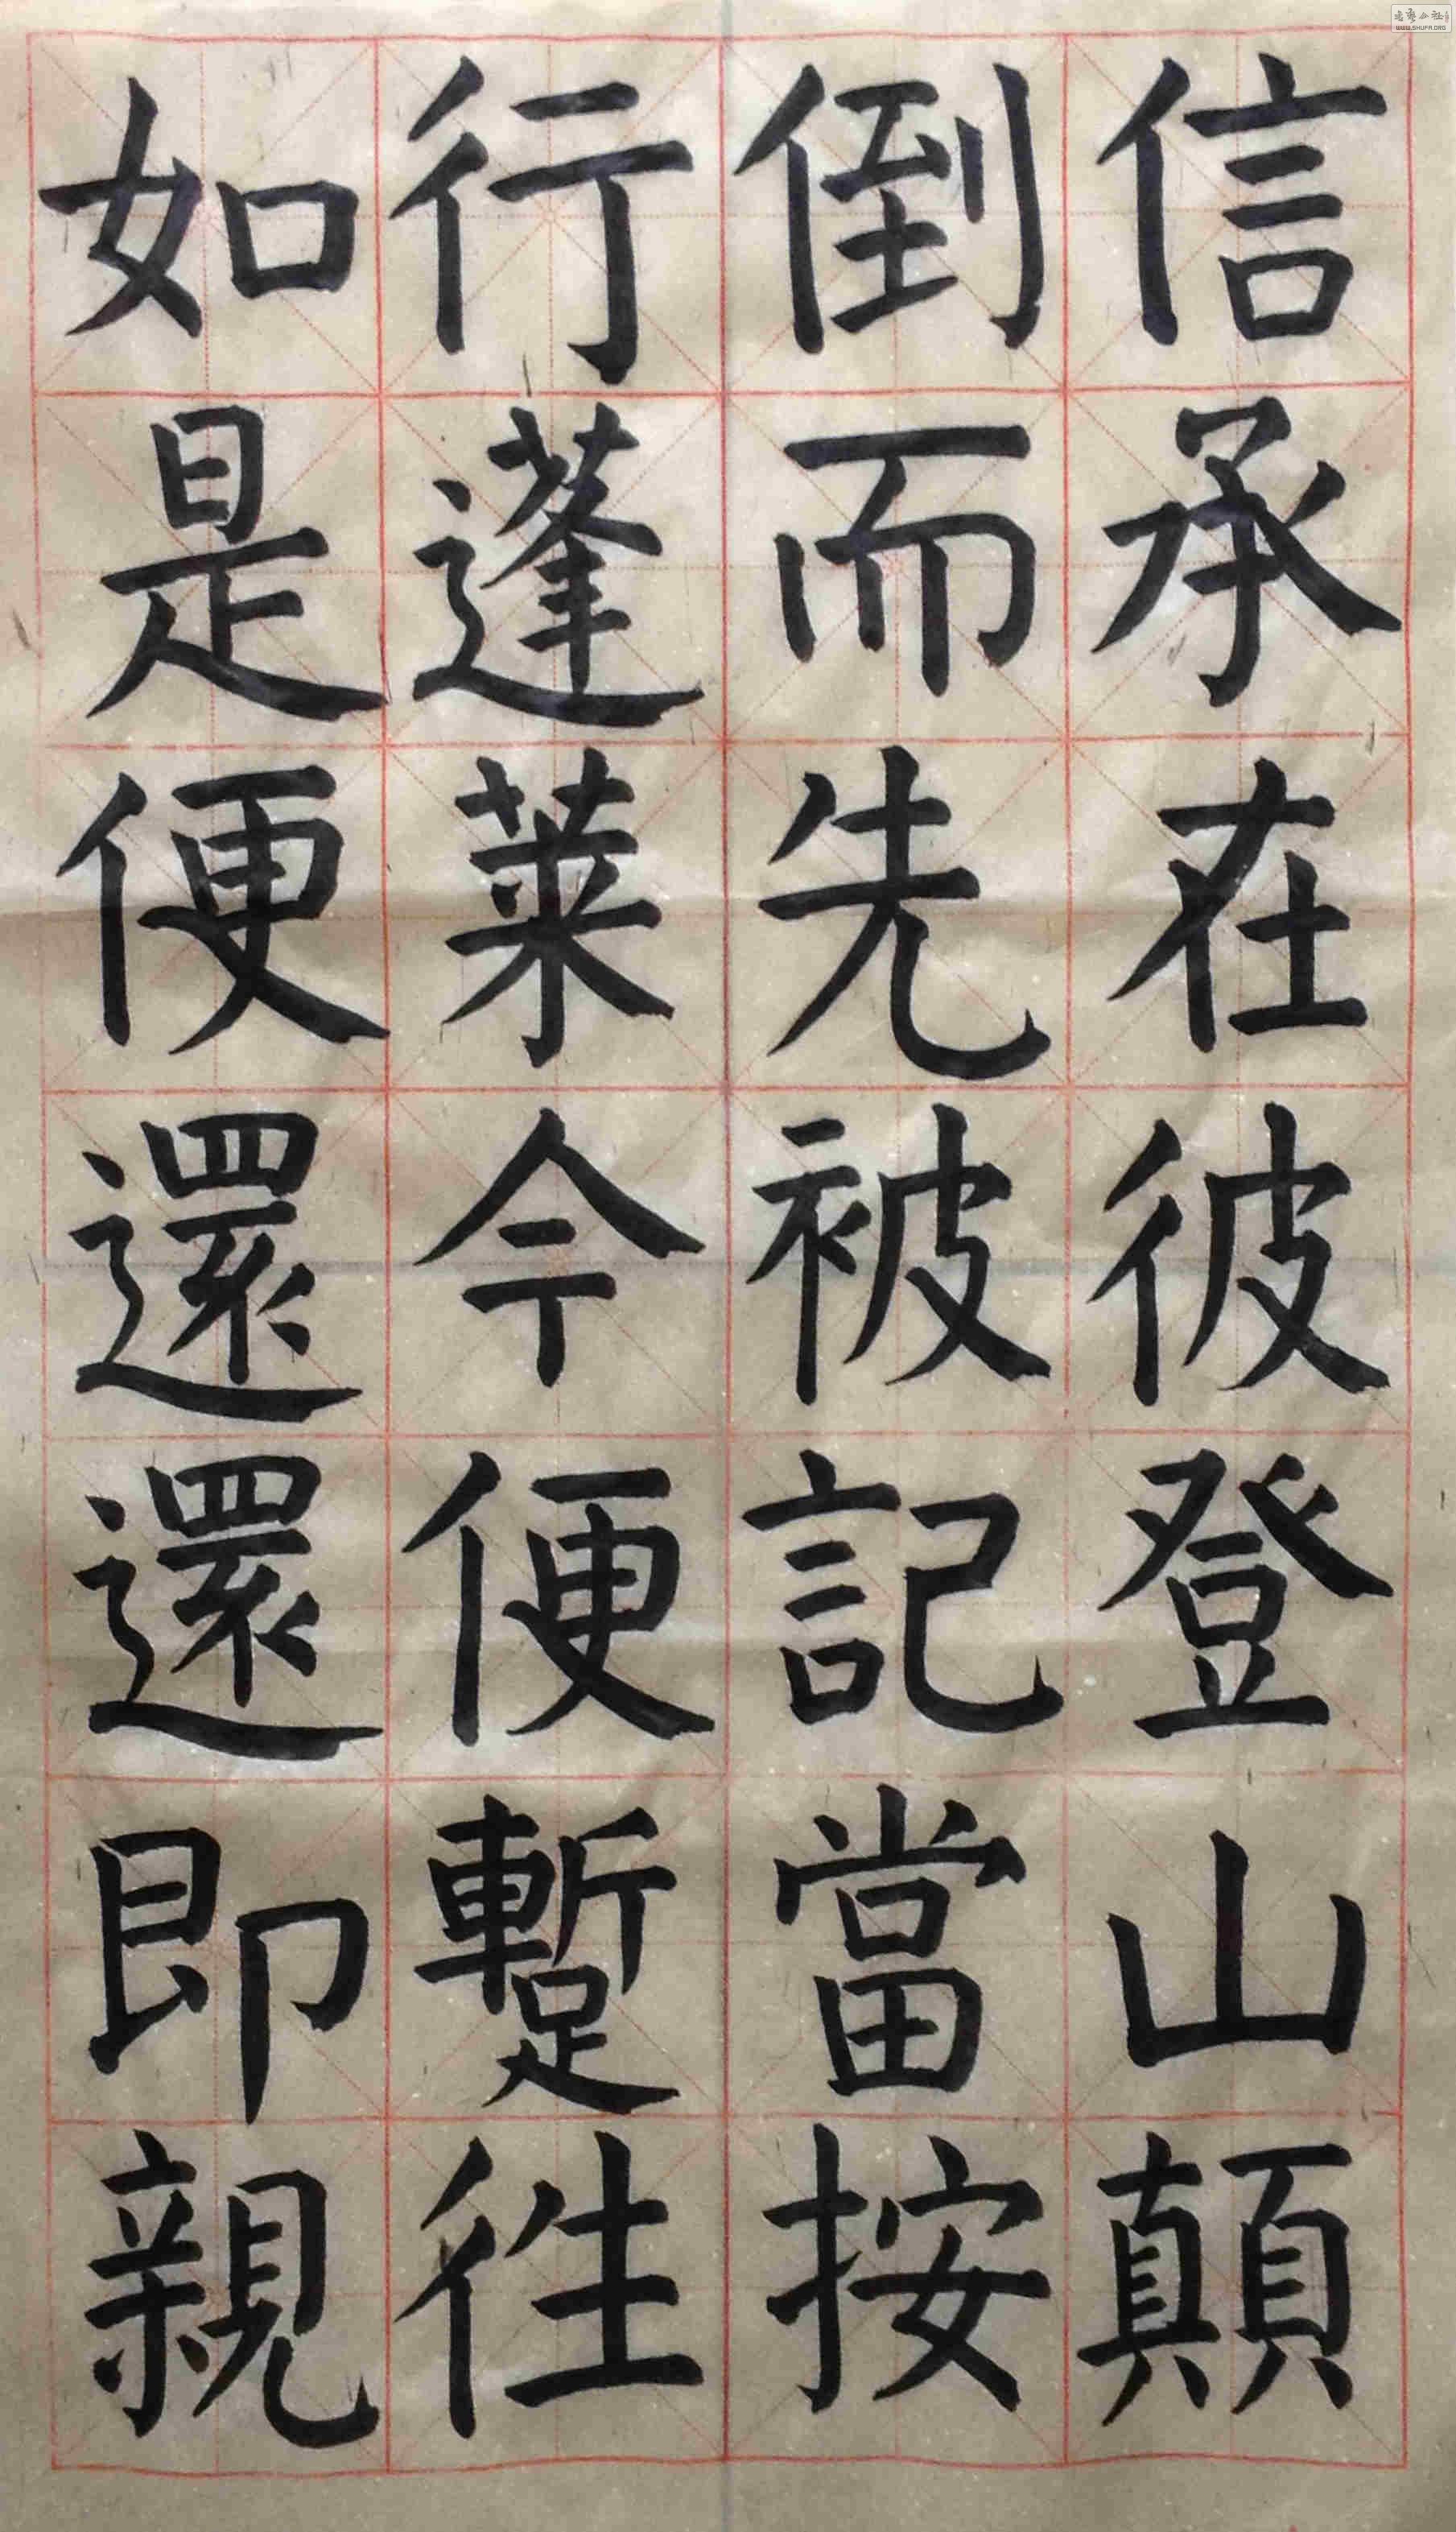 信承在彼登山顛
倒而先被記當按
行蓬萊今便蹔往
如是便還還即親
WWW.SHUFA.ORG